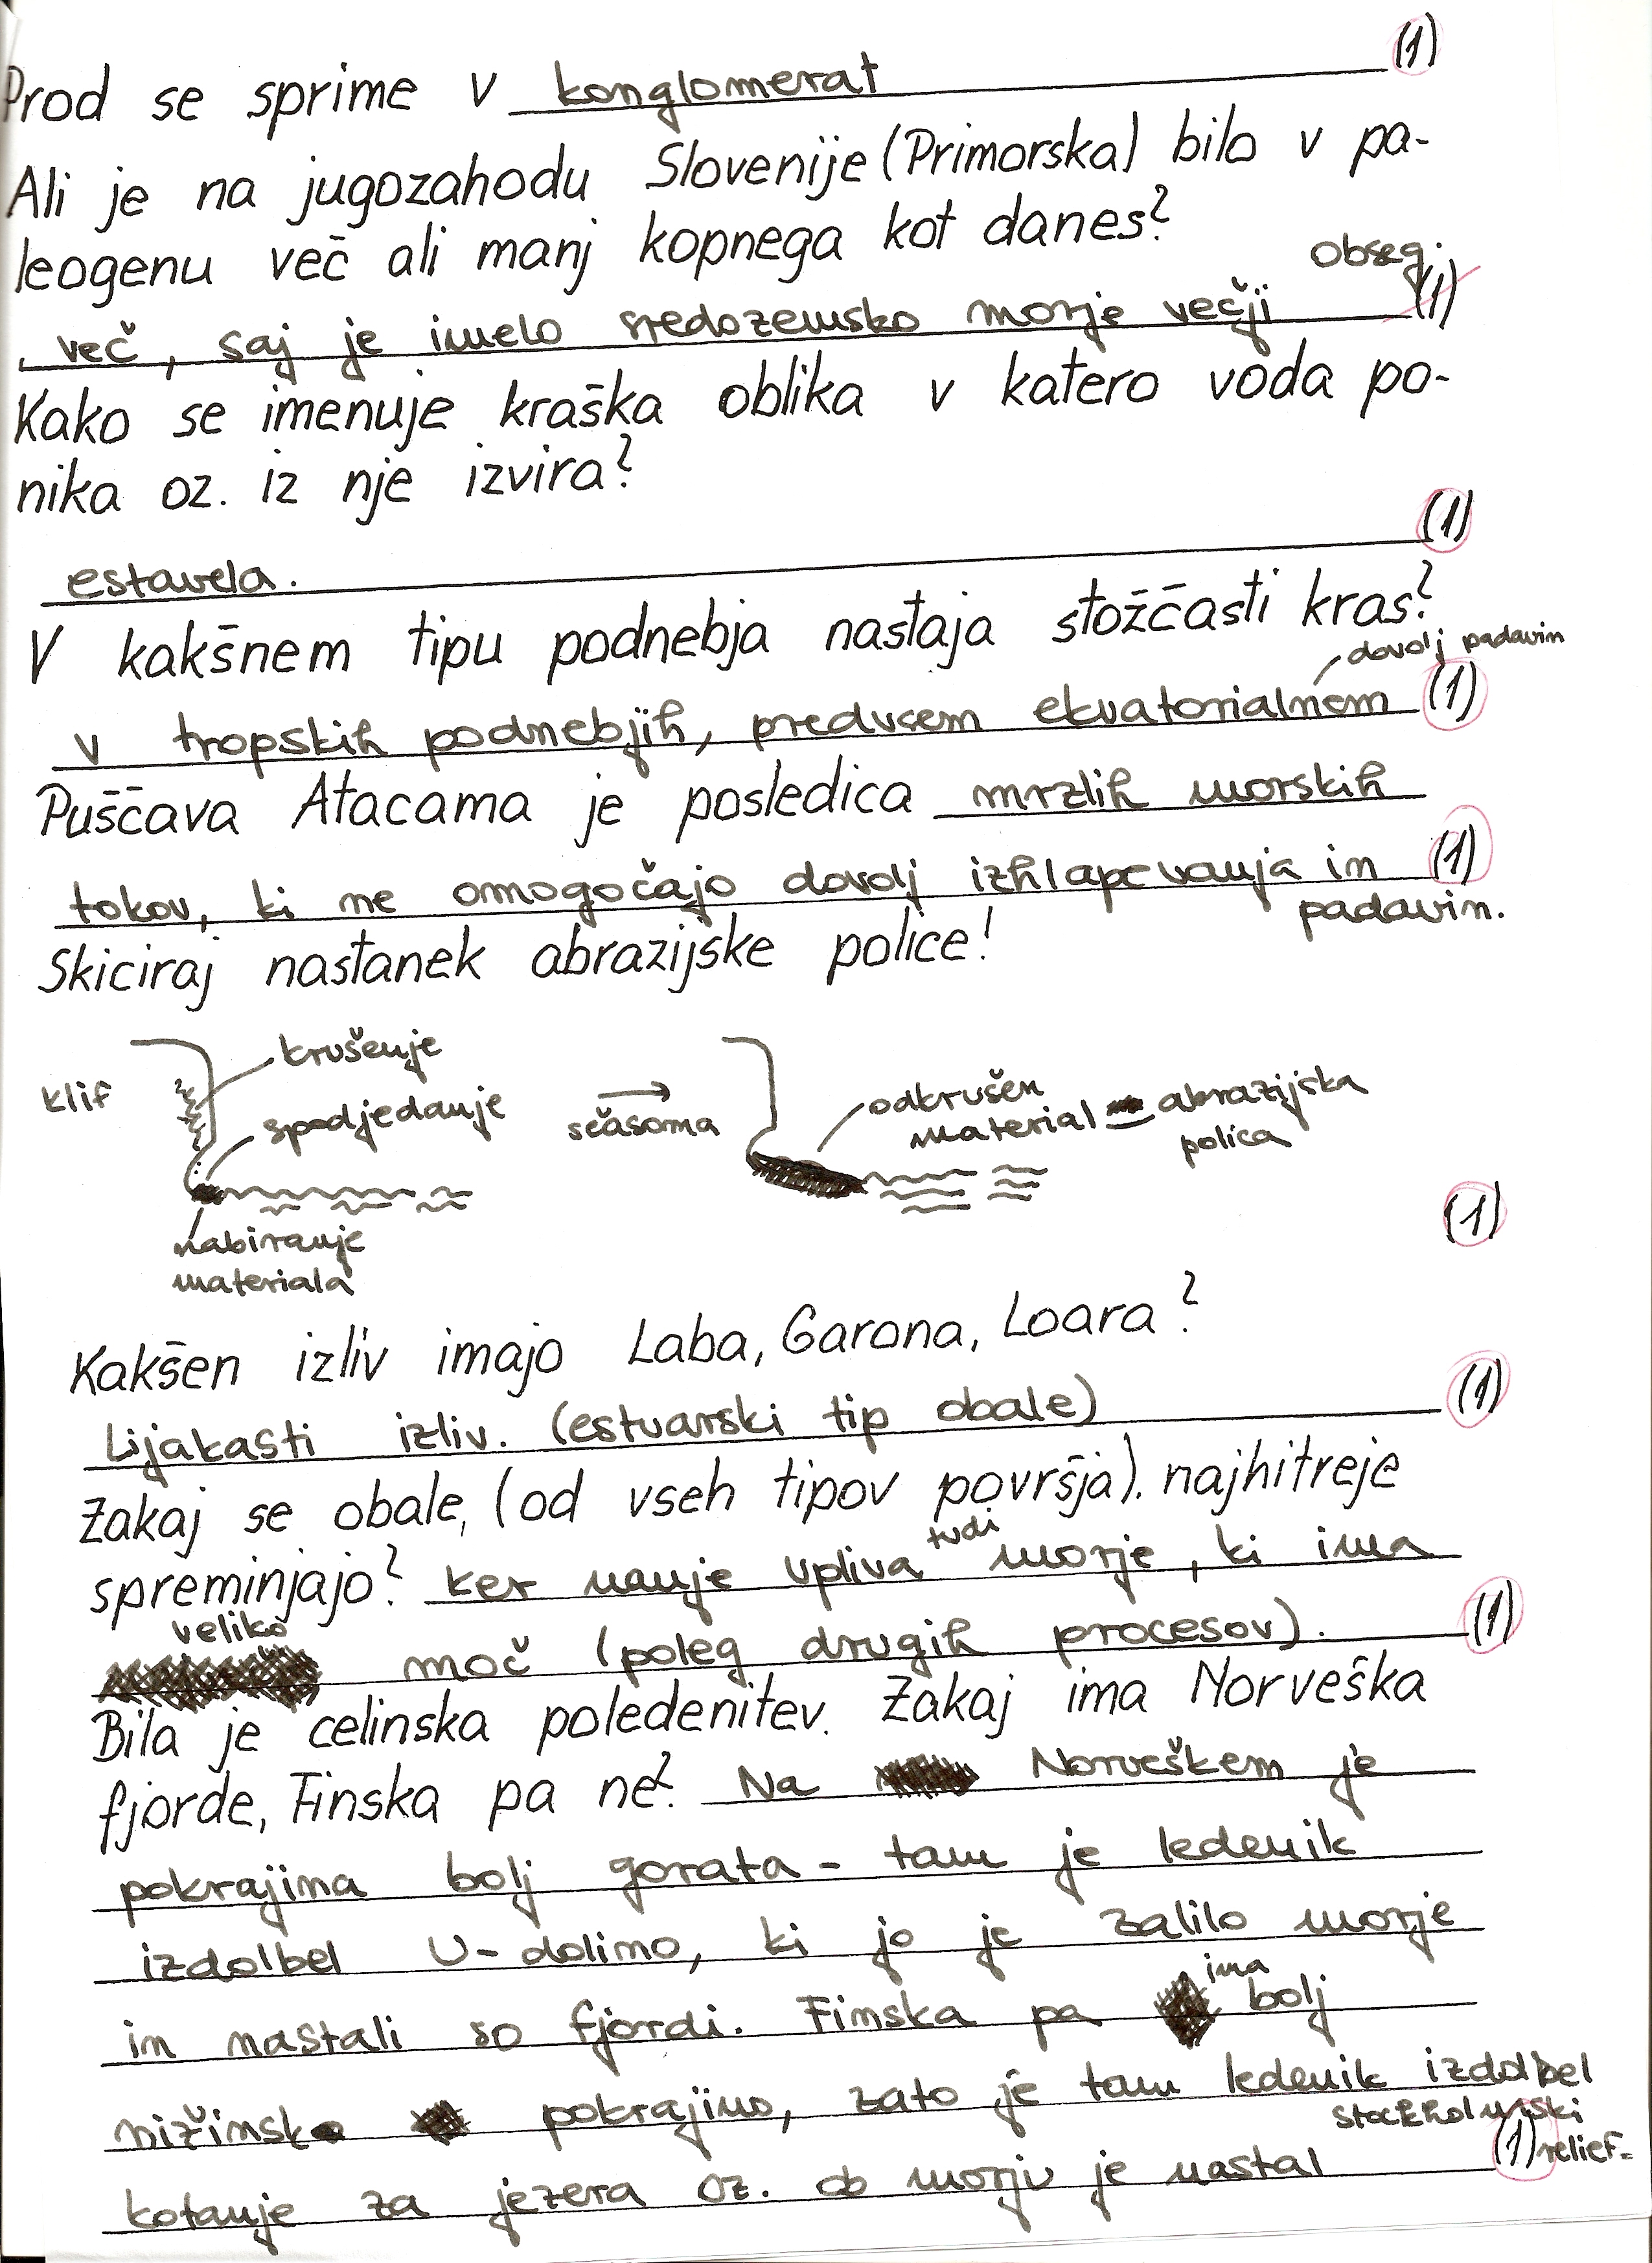 Prod se sprime v konglomerat (1)
Ali je na jugozahodu Slovenije (Primorska) bilo v pa-
leogenu več ali manj kopnega kot danes?
več, saj je imelo sredozemsko morje večji obseg. (1)
Kako se imenuje kraška oblika v katero voda po-
nika oz. iz nje izvira?
estavela. (1)
V kakšnem tipu podnebja nastaja stožčasti kras?
dovolj padavin
v tropskih podnebjih, predvsem ekvatorialnem (1)
Puščava Atacama je posledica mrzlih morskih
tokov, ki ne omogočajo dovolj izhlapevanja in (1)
padavin.
Skiciraj nastanek abrazijske police!
klif
krušenje
spodjedanje
nabiranje
materiala
sčasoma
odkrušen
material = abrazijska
polica
(1)
Kakšen izliv imajo Laba, Garona, Loara?
Lijakasti izliv. (estuarski tip obale) (1)
Zakaj se obale, (od vseh tipov površja). najhitreje
spreminjajo? ker nanje vpliva tudi morje, ki ima
veliko moč (poleg drugih procesov). (1)
Bila je celinska poledenitev. Zakaj ima Norveška
fjorde, Finska pa ne? Na Norveškem je
pokrajina bolj gorata - tam je ledenik
izdolbel U-dolino, ki jo je zalilo morje
in nastali so fjordi. Finska pa ima bolj
nižinsko pokrajino, zato je tam ledenik izdolbel
kotanje za jezera oz. ob morju je nastal stockholmski (1) relief.